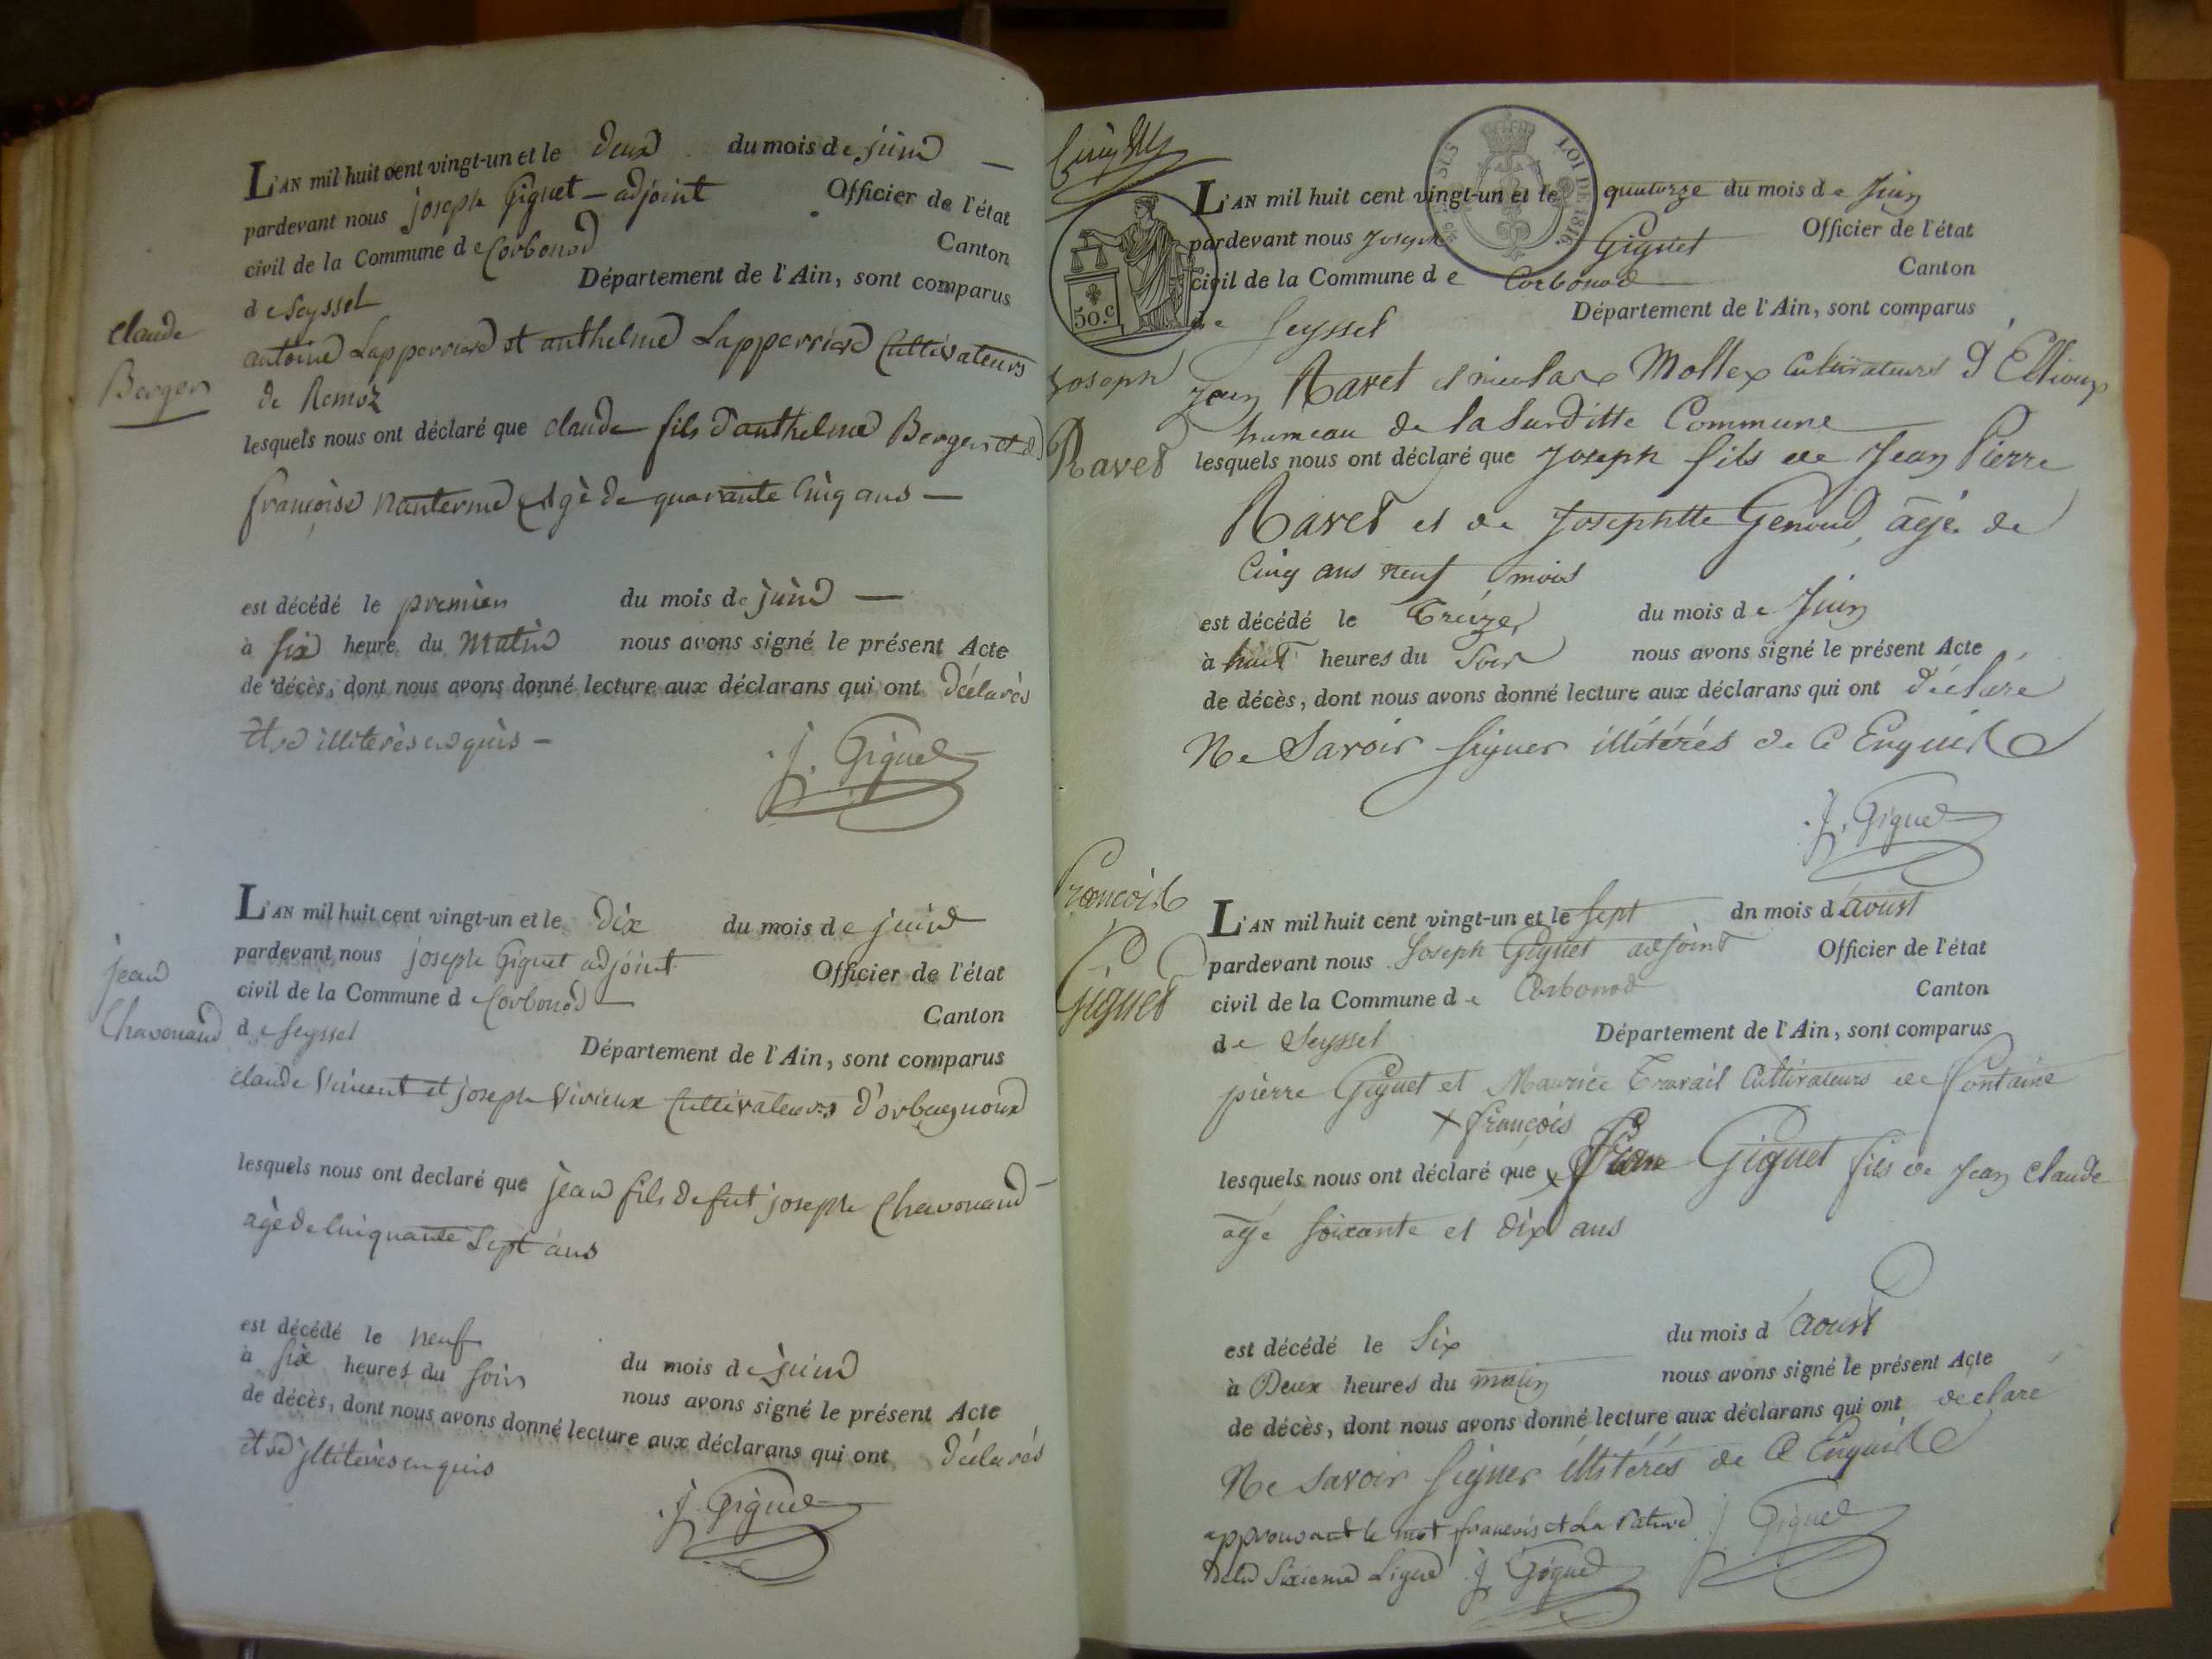 L'AN mil huit cent vingt-un et le deux du mois de juin
pardevant nous joseph Giguet - adjoint Officier de l'état
civil de la Commune de Corbonod Canton
de Seyssel Département de l'Ain, sont comparus
claude
Berger
antoine Lapperriere et anthelme Lapperriere Cultivateurs
de Remoz
lesquels nous ont déclaré que claude fils d'anthelme Berger et de
françoise Nanterme agè de quarante cinq ans —
est décédé le premier du mois de juin —
à six heure du Matin nous avons signé le présent Acte
de décès, dont nous avons donné lecture aux déclarans qui ont déclarés
etre illiterès enquis —
J. Giguet
L'AN mil huit cent vingt-un et le dix du mois de juin
pardevant nous joseph Giguet adjoint Officier de l'état
civil de la Commune de Corbonod — Canton
de Seyssel Département de l'Ain, sont comparus
jean
Chavouand
claude Vincent et joseph Virieux Cultivateurs d'orbagnoux
lesquels nous ont declaré que jean fils de fut joseph Chavouand
agè de Cinquante Sept ans
est décédé le neuf du mois de juin
à six heures du soir nous avons signé le présent Acte
de décès, dont nous avons donné lecture aux déclarans qui ont déclarés
etre illitèrès enquis
J. Giguet
LOI DE 1816
50.c
L'AN mil huit cent vingt-un et le quatorze du mois de Juin
pardevant nous Joseph Giguet Officier de l'état
civil de la Commune de Corbonod Canton
de Seyssel Département de l'Ain, sont comparus
Joseph
Ravet
Jean Ravet et nicolas Mollex Cultivateurs d'Etlioux
hameau de la Surditte Commune
lesquels nous ont déclaré que Joseph fils de Jean Pierre
Ravet et de Josephtte Genoud, agé de
Cinq ans neuf mois
est décédé le Treize du mois de Juin
à huit heures du Soir nous avons signé le présent Acte
de décès, dont nous avons donné lecture aux déclarans qui ont déclaré
Ne Savoir Signer illitérés de Ce Enquis
J. Giguet
François
Giguet
L'AN mil huit cent vingt-un et le Sept dn mois d'aoust
pardevant nous Joseph Giguet adjoint Officier de l'état
civil de la Commune de Corbonod Canton
de Seyssel Département de l'Ain, sont comparus
pierre Giguet et Maurice Travail Cultivateurs de Fontaine
x françois
lesquels nous ont déclaré que x Giguet fils de Jean Claude
agé soixante et dix ans
est décédé le Six du mois d'aoust
à Deux heures du matin nous avons signé le présent Acte
de décès, dont nous avons donné lecture aux déclarans qui ont declaré
Ne Savoir Signer illitérés de Ce Enquis
approuvant le mot francois et La rature J Giguet
de la Sixieme Ligne J. Giguet